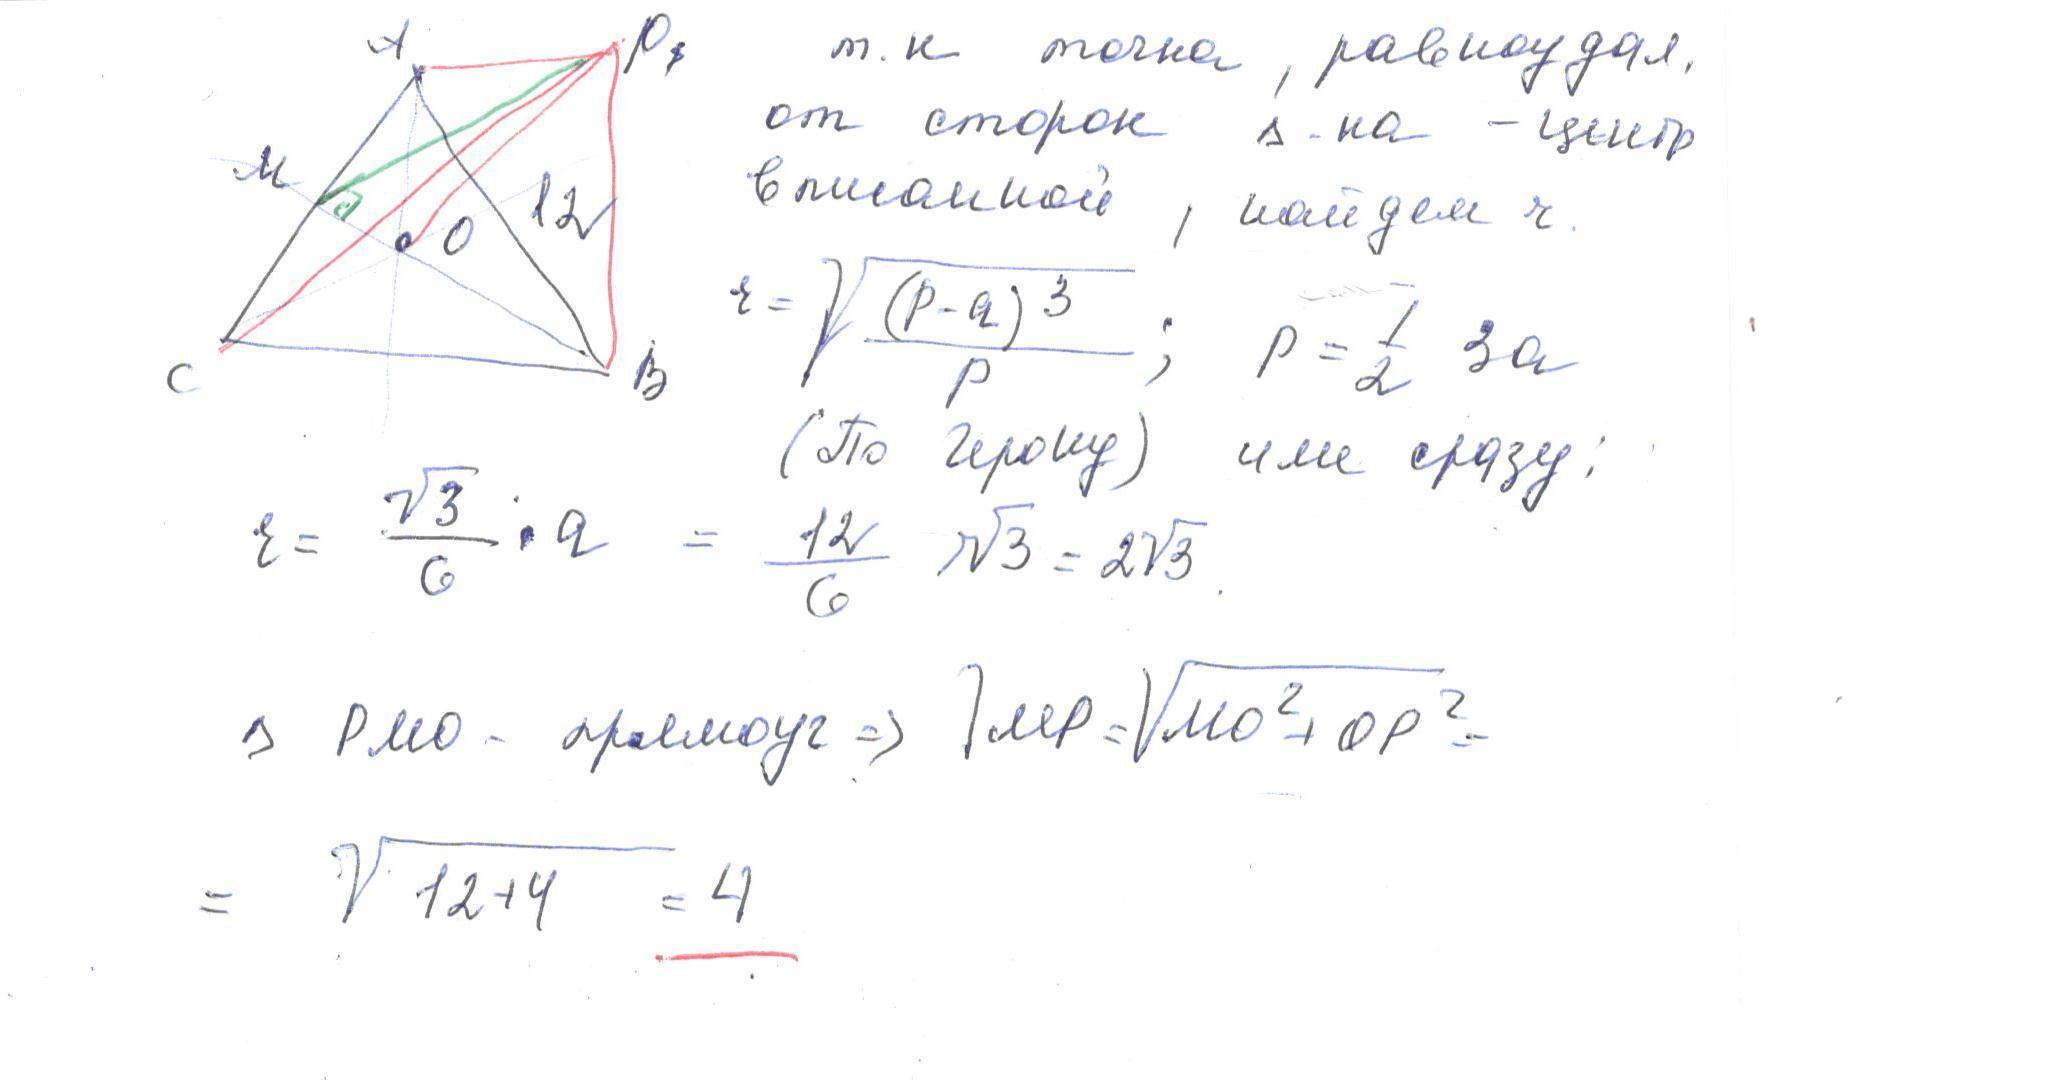 A
P
M
O
12
C
B
т.к точка, равноудал.
от сторон Δ-ка - центр
вписанной, найдем r.
r = √((p-a)³/p); p = 1/2 3a
(По Герону) или сразу:
r = √3/6 · a = 12/6 √3 = 2√3.
Δ PMO - прямоуг => MP = √(MO² + OP²) =
= √(12+4) = 4